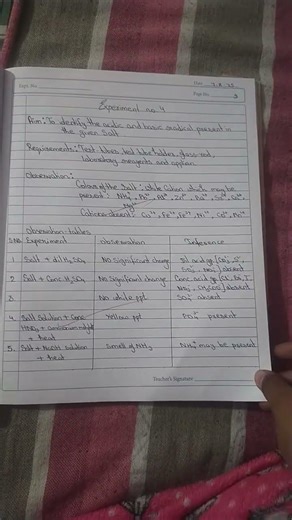 Date 2.8.25
Expt. No.
Page No. 9
Experiment no 4
Aim: To identify the acidic and basic radical present in
the given salt
Requirements: Test tubes, test tube holder, glass rod,
Laboratory reagents and spoon
Observation:
Colour of the salt: white Cation which may be
present: NH₄⁺, Pb²⁺, Al³⁺, Zn²⁺, Ba²⁺, Sr²⁺, Ca²⁺
Mg²⁺
Cations absent: Cu²⁺, Fe²⁺, Fe³⁺, Ni²⁺, Co²⁺, Mn²⁺
Observation tables
S.No Experiment Observation Inference
1 Salt + dil H₂SO₄ No significant change Dil acid gp (CO₃²⁻, S²⁻,
SO₃²⁻, NO₂⁻) absent
2 Salt + Conc. H₂SO₄ No significant change Conc. acid gp (Cl⁻, Br⁻, I⁻,
NO₃⁻, CH₃COO⁻) absent
3. No white ppt SO₄²⁻ absent
4. Salt Solution + Conc Yellow ppt PO₄³⁻ present
HNO₃ + ammonium
+ heat
5. Salt + NaOH solution Smell of NH₃ NH₄⁺ may be present
+ heat
Teacher's Signature